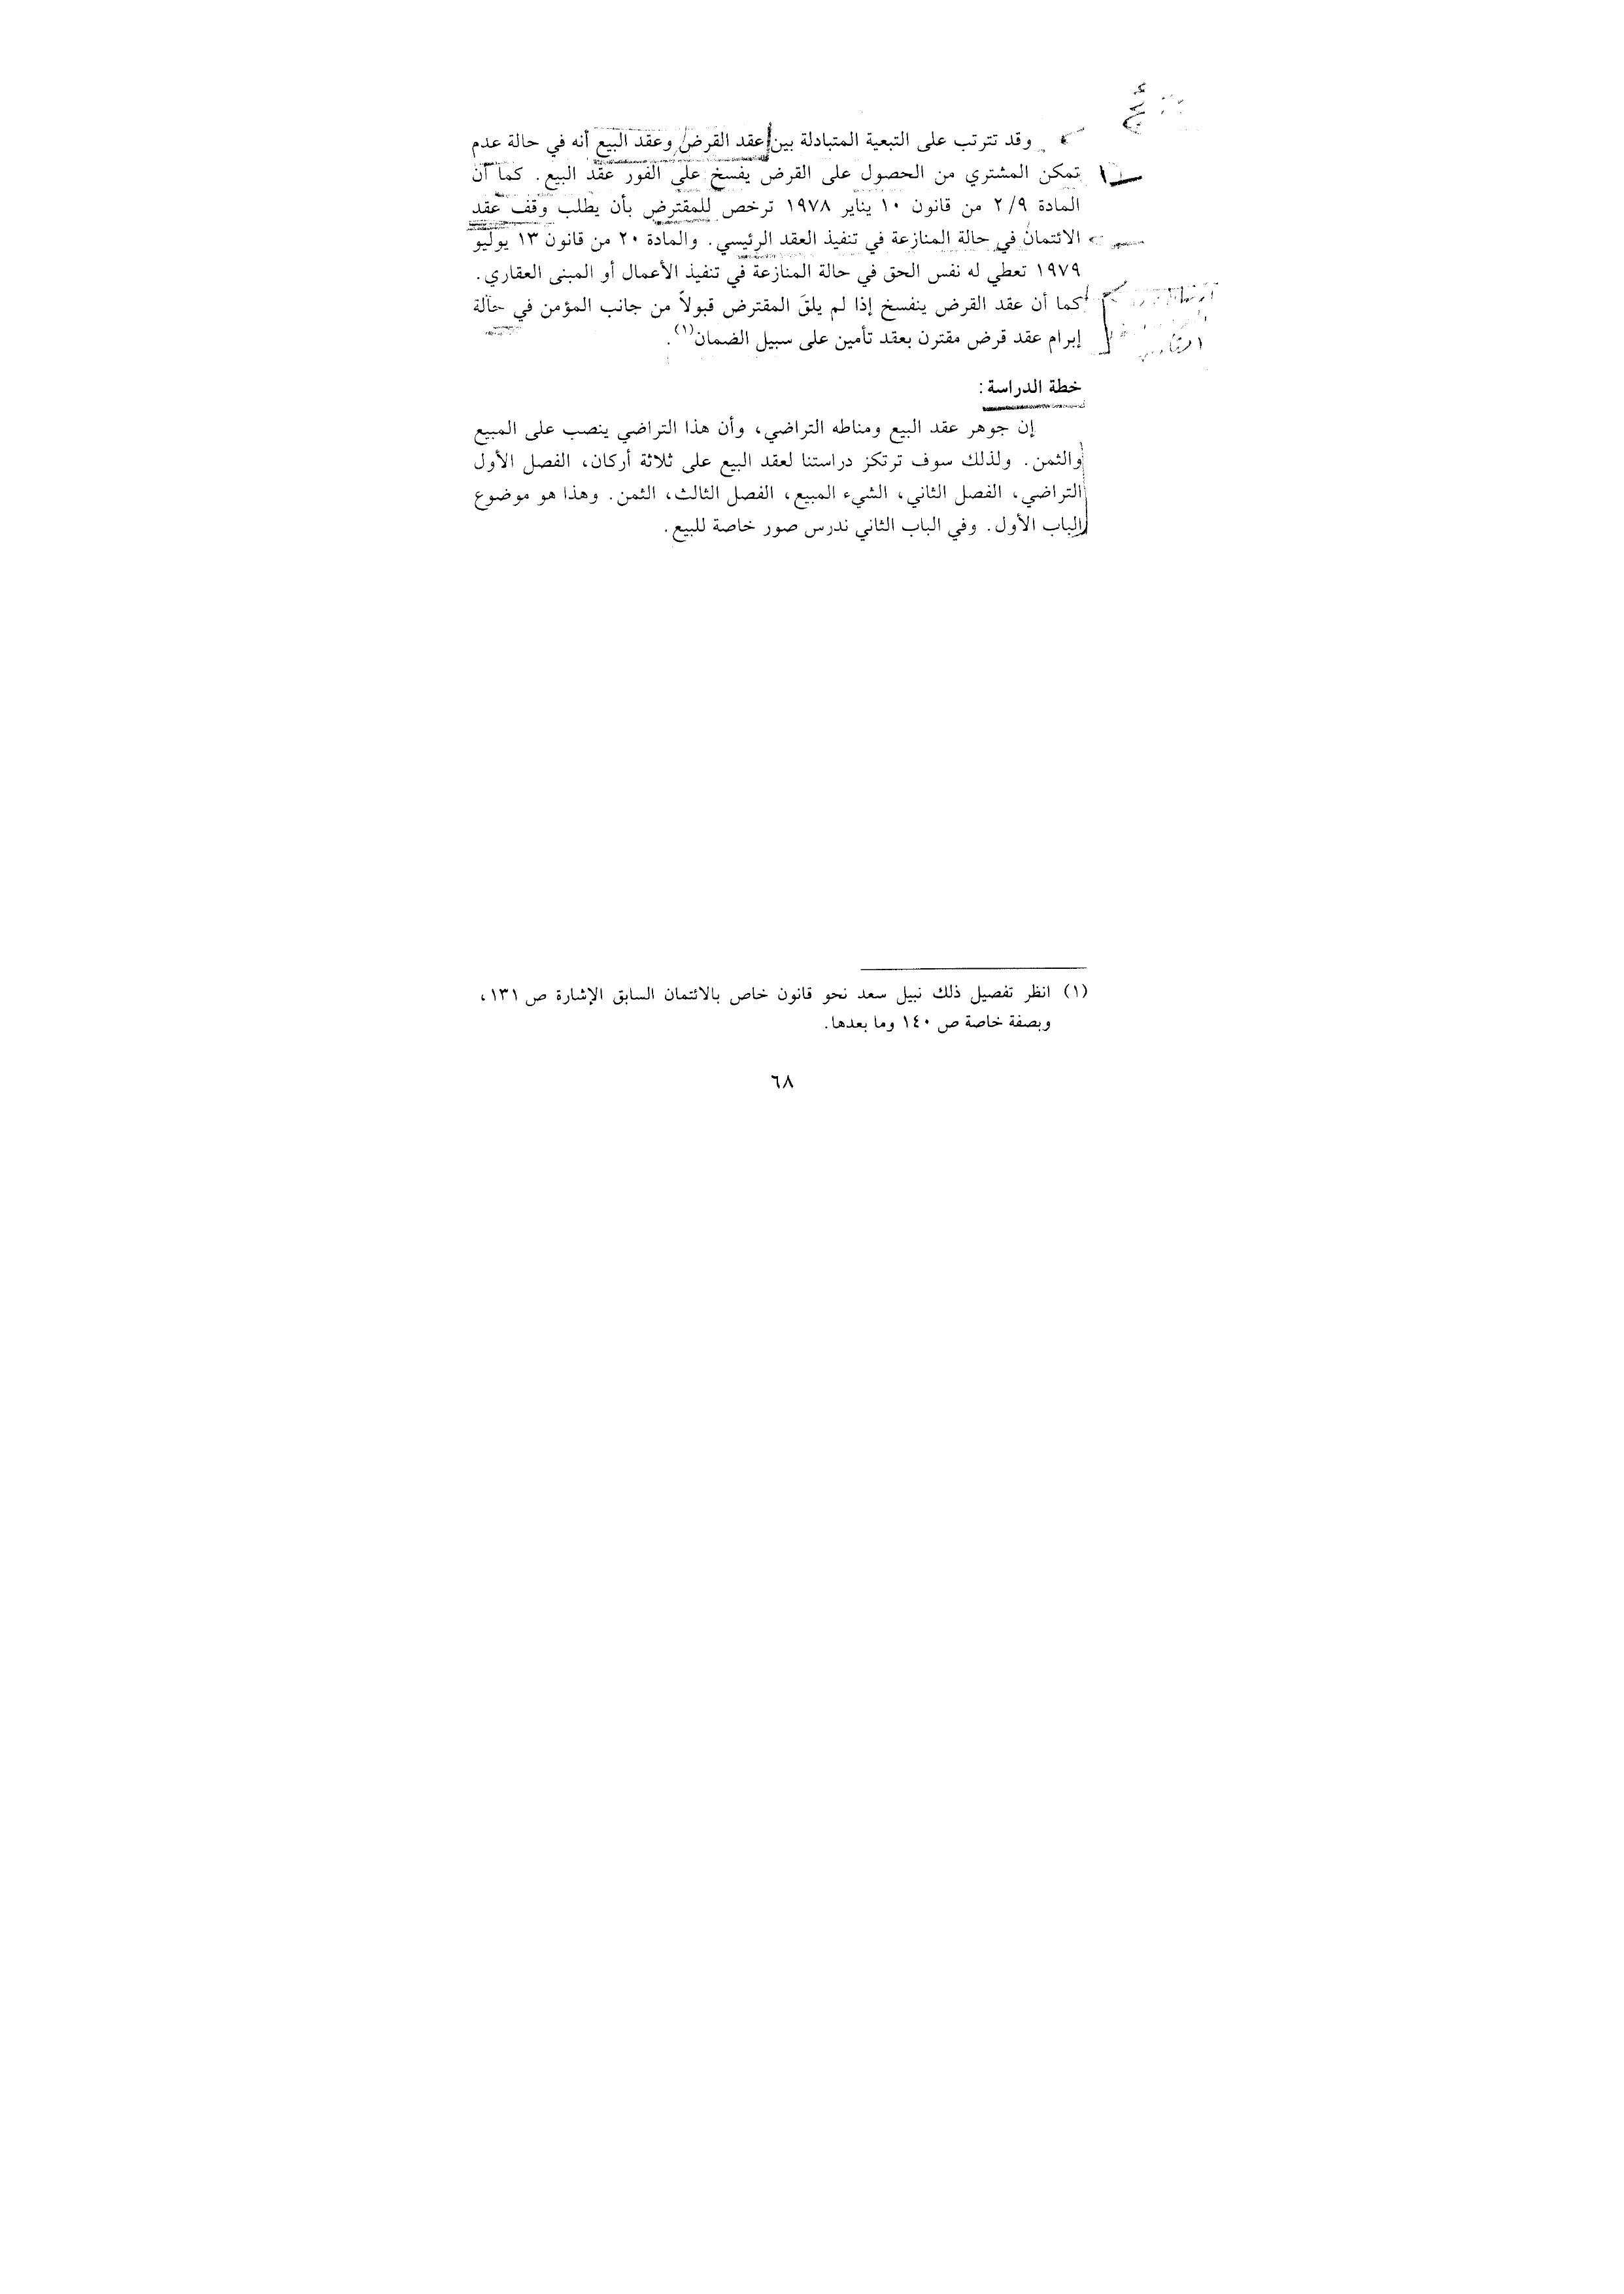 وقد تترتب على التبعية المتبادلة بين عقد القرض وعقد البيع أنه في حالة عدم
تمكن المشتري من الحصول على القرض يفسخ على الفور عقد البيع. كما أن
المادة ٢/٩ من قانون ١٠ يناير ١٩٧٨ ترخص للمقترض بأن يطلب وقف عقد
الائتمان في حالة المنازعة في تنفيذ العقد الرئيسي. والمادة ٢٠ من قانون ١٣ يوليو
١٩٧٩ تعطي له نفس الحق في حالة المنازعة في تنفيذ الأعمال أو المبنى العقاري.
كما أن عقد القرض ينفسخ إذا لم يلقَ المقترض قبولاً من جانب المؤمن في حالة
إبرام عقد قرض مقترن بعقد تأمين على سبيل الضمان(١).
خطة الدراسة:
إن جوهر عقد البيع ومناطه التراضي، وأن هذا التراضي ينصب على المبيع
والثمن. ولذلك سوف ترتكز دراستنا لعقد البيع على ثلاثة أركان، الفصل الأول
التراضي، الفصل الثاني، الشيء المبيع، الفصل الثالث، الثمن. وهذا هو موضوع
الباب الأول. وفي الباب الثاني ندرس صور خاصة للبيع.
(١) انظر تفصيل ذلك نبيل سعد نحو قانون خاص بالائتمان السابق الإشارة ص ١٣١،
وبصفة خاصة ص ١٤٠ وما بعدها.
٦٨